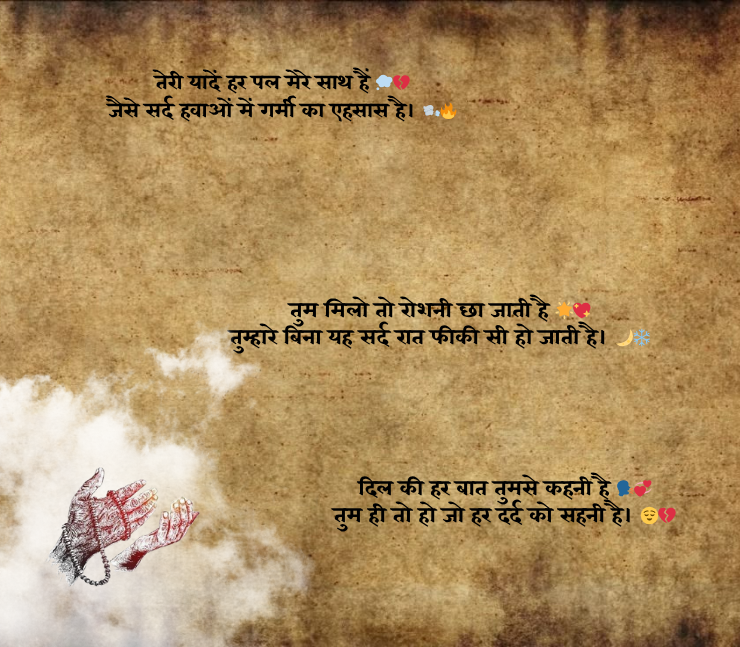 तेरी यादें हर पल मेरे साथ हैं 💭💔
जैसे सर्द हवाओं में गर्मी का एहसास है। 🌬️🔥
तुम मिलो तो रोशनी छा जाती है ☀️💖
तुम्हारे बिना यह सर्द रात फीकी सी हो जाती है। 🌙❄️
दिल की हर बात तुमसे कहनी है 🗣️💞
तुम ही तो हो जो हर दर्द को सहनी है। 😌💔